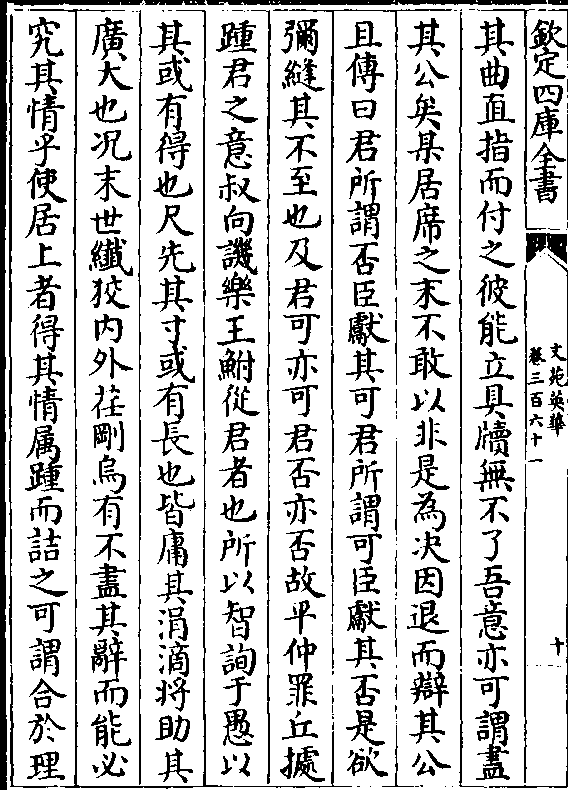 欽定四庫全書
文苑英華
卷三百六十一
十
其曲直指而付之彼能立具牘無不了吾意亦可謂盡
其公矣某居席之末不敢以非是為决因退而辯其公
且傳曰君所謂否臣獻其可君所謂可臣獻其否是欲
彌縫其不至也及君可亦可君否亦否故平仲罪丘㩀
踵君之意叔向譏樂王鮒從君者也所以智詢于愚以
其或有得也尺先其寸或有長也皆庸其涓滴將助其
廣大也况末世纎狡内外荏剛烏有不盡其辭而能必
究其情乎使居上者得其情属踵而詰之可謂合於理